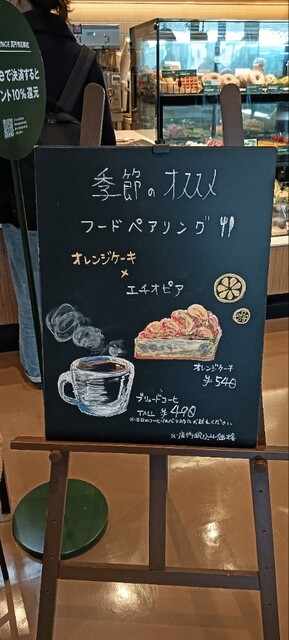 季節のオススメ
フードペアリング
オレンジケーキ
×
エチオピア
オレンジケーキ
¥540
ブリュードコーヒー
TALL ¥490
※店内税込み価格
で決済すると
ント10%還元